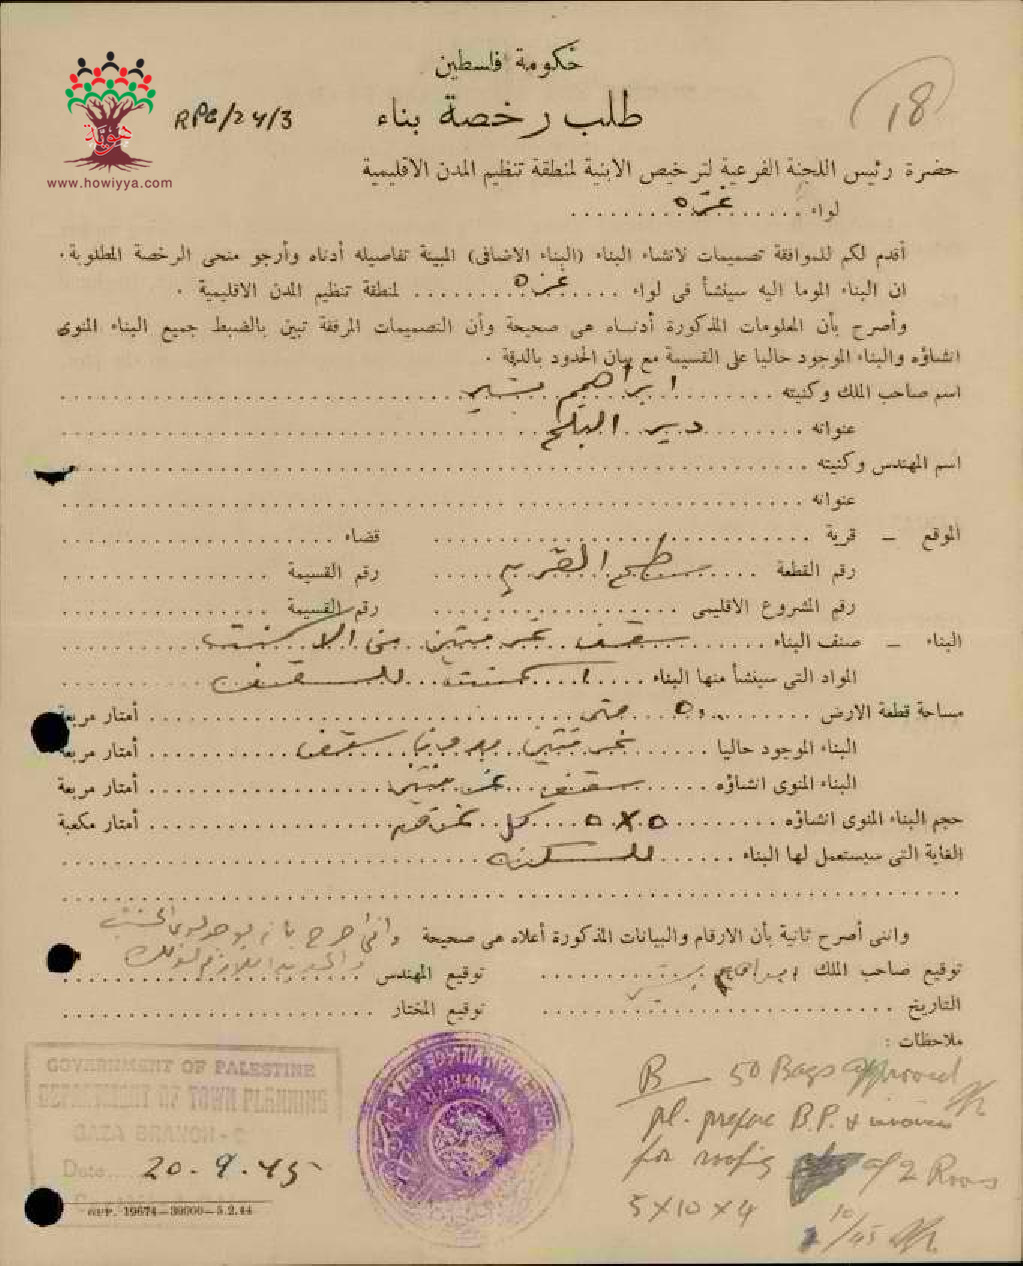 حكومة فلسطين
18
RPB/24/3
طلب رخصة بناء
هوية
www.howiyya.com
حضرة رئيس اللجنة الفرعية لترخيص الابنية لمنطقة تنظيم المدن الاقليمية
لواء غزه
أقدم لكم للموافقة تصميمات لانشاء البناء (البناء الاضافى) المبينة تفاصيله أدناه وأرجو منحى الرخصة المطلوبة.
ان البناء الموما اليه سينشأ فى لواء غزه لمنطقة تنظيم المدن الاقليمية.
وأصرح بأن المعلومات المذكورة أدناه هى صحيحة وأن التصميمات المرفقة تبين بالضبط جميع البناء المنوى
انشاؤه والبناء الموجود حاليا على القسيمة مع بيان الحدود بالدقة.
اسم صاحب الملك وكنيته ابراهيم بشير
عنوانه دير البلح
اسم المهندس وكنيته
عنوانه
الموقع – قرية قضاء
رقم القطعة رقم القسيمة
رقم المشروع الاقليمى رقم القسيمة
البناء – صنف البناء سقف غرفتين من الاسمنت
المواد التى سينشأ منها البناء اسمنت للسقف
مساحة قطعة الارض أمتار مربعة
البناء الموجود حاليا غرفتين بدون سقف أمتار مربعة
البناء المنوى انشاؤه سقف غرفتين أمتار مربعة
حجم البناء المنوى انشاؤه ٥x٥ كل غرفه أمتار مكعبة
الغاية التى سيستعمل لها البناء للسكنه
وانى أصرح ثانية بأن الارقام والبيانات المذكورة أعلاه هى صحيحة
توقيع صاحب الملك ابراهيم بشير توقيع المهندس
التاريخ توقيع المختار
ملاحظات :
GOVERNMENT OF PALESTINE
DEPARTMENT OF TOWN PLANNING
GAZA BRANCH
Date 20-9-45
GPP. 19674—30000—5.2.44
B 50 Bags approved
pl. prepare B.P. & invoice
for roofing of 2 Rooms
5 x 10 x 4
10/45